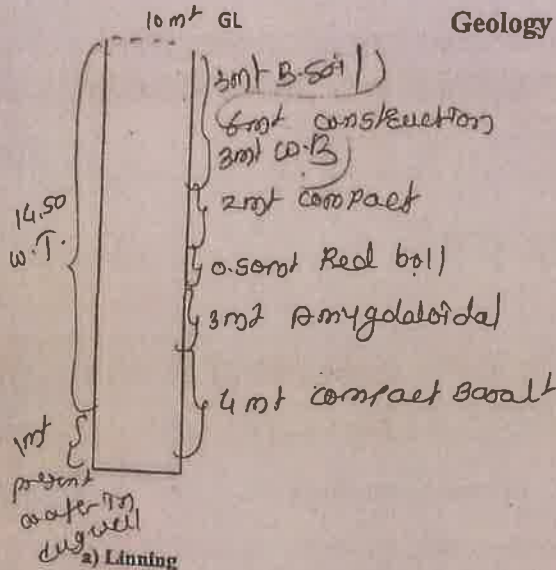 10 mt GL
Geology
3mt B.Soil
6mt construction
3mt W.B
2mt compact
14.50
W.T.
0.50mt Red boll
3mt Amygdaloidal
4 mt compact Basalt
1mt
present
water in
dugwell
a) Linning